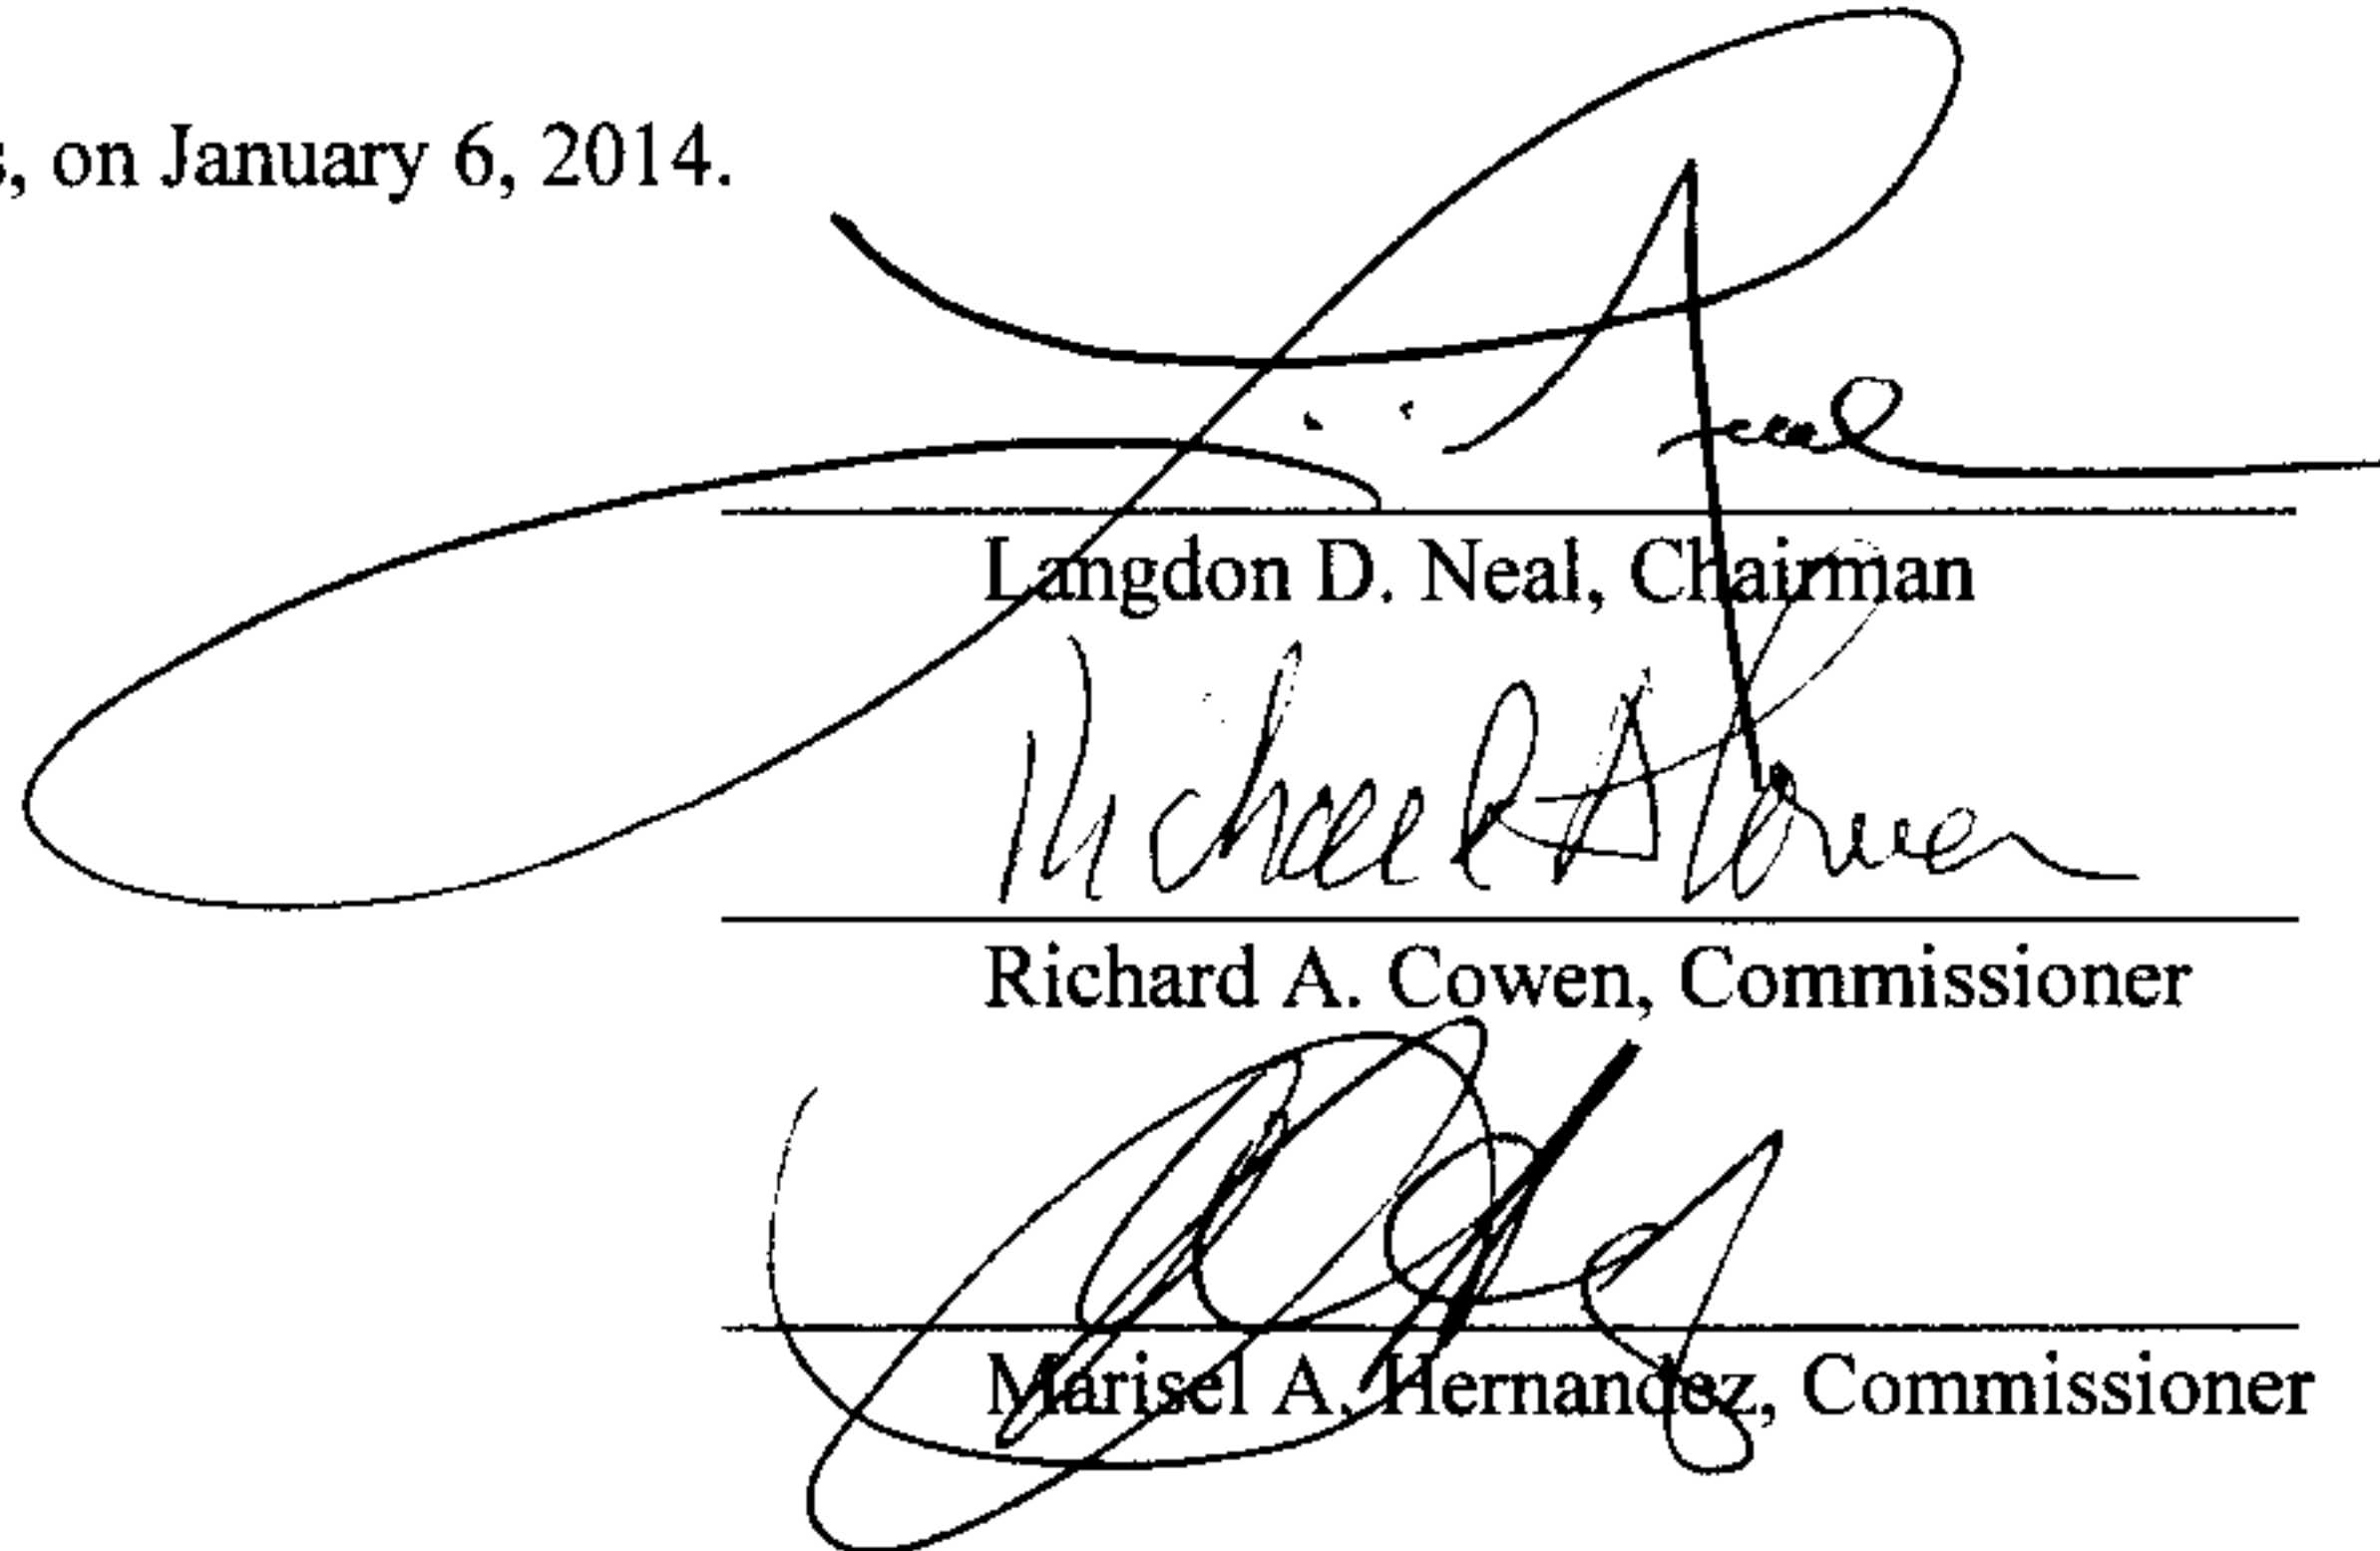 , on January 6, 2014.
Langdon D. Neal, Chairman
Richard A. Cowen, Commissioner
Marisel A. Hernandez, Commissioner